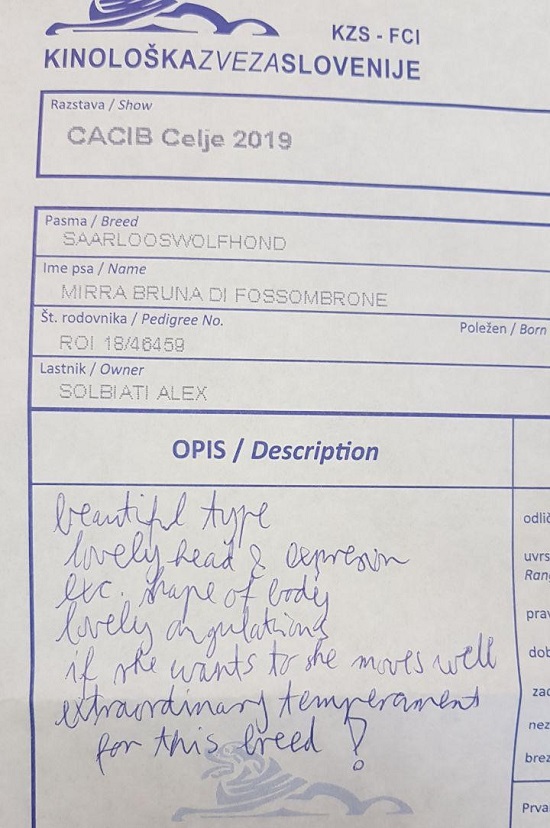 KZS - FCI
KINOLOŠKAZVEZASLOVENIJE
Razstava / Show
CACIB Celje 2019
Pasma / Breed
SAARLOOSWOLFHOND
Ime psa / Name
MIRRA BRUNA DI FOSSOMBRONE
Št. rodovnika / Pedigree No.
Poležen / Born
ROI 18/46459
Lastnik / Owner
SOLBIATI ALEX
OPIS / Description
beautiful type
lovely head & expresion
exc. shape of body
lovely angulations
if she wants to she moves well
extraordinary temperament
for this breed !
odlič
uvrs
Ran
prav
dob
zad
nez
brez
Prva